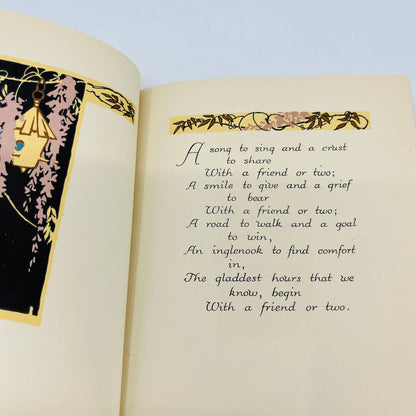 A song to sing and a crust
to share
With a friend or two;
A smile to give and a grief
to bear
With a friend or two;
A road to walk and a goal
to win,
An inglenook to find comfort
in,
The gladdest hours that we
know, begin
With a friend or two.